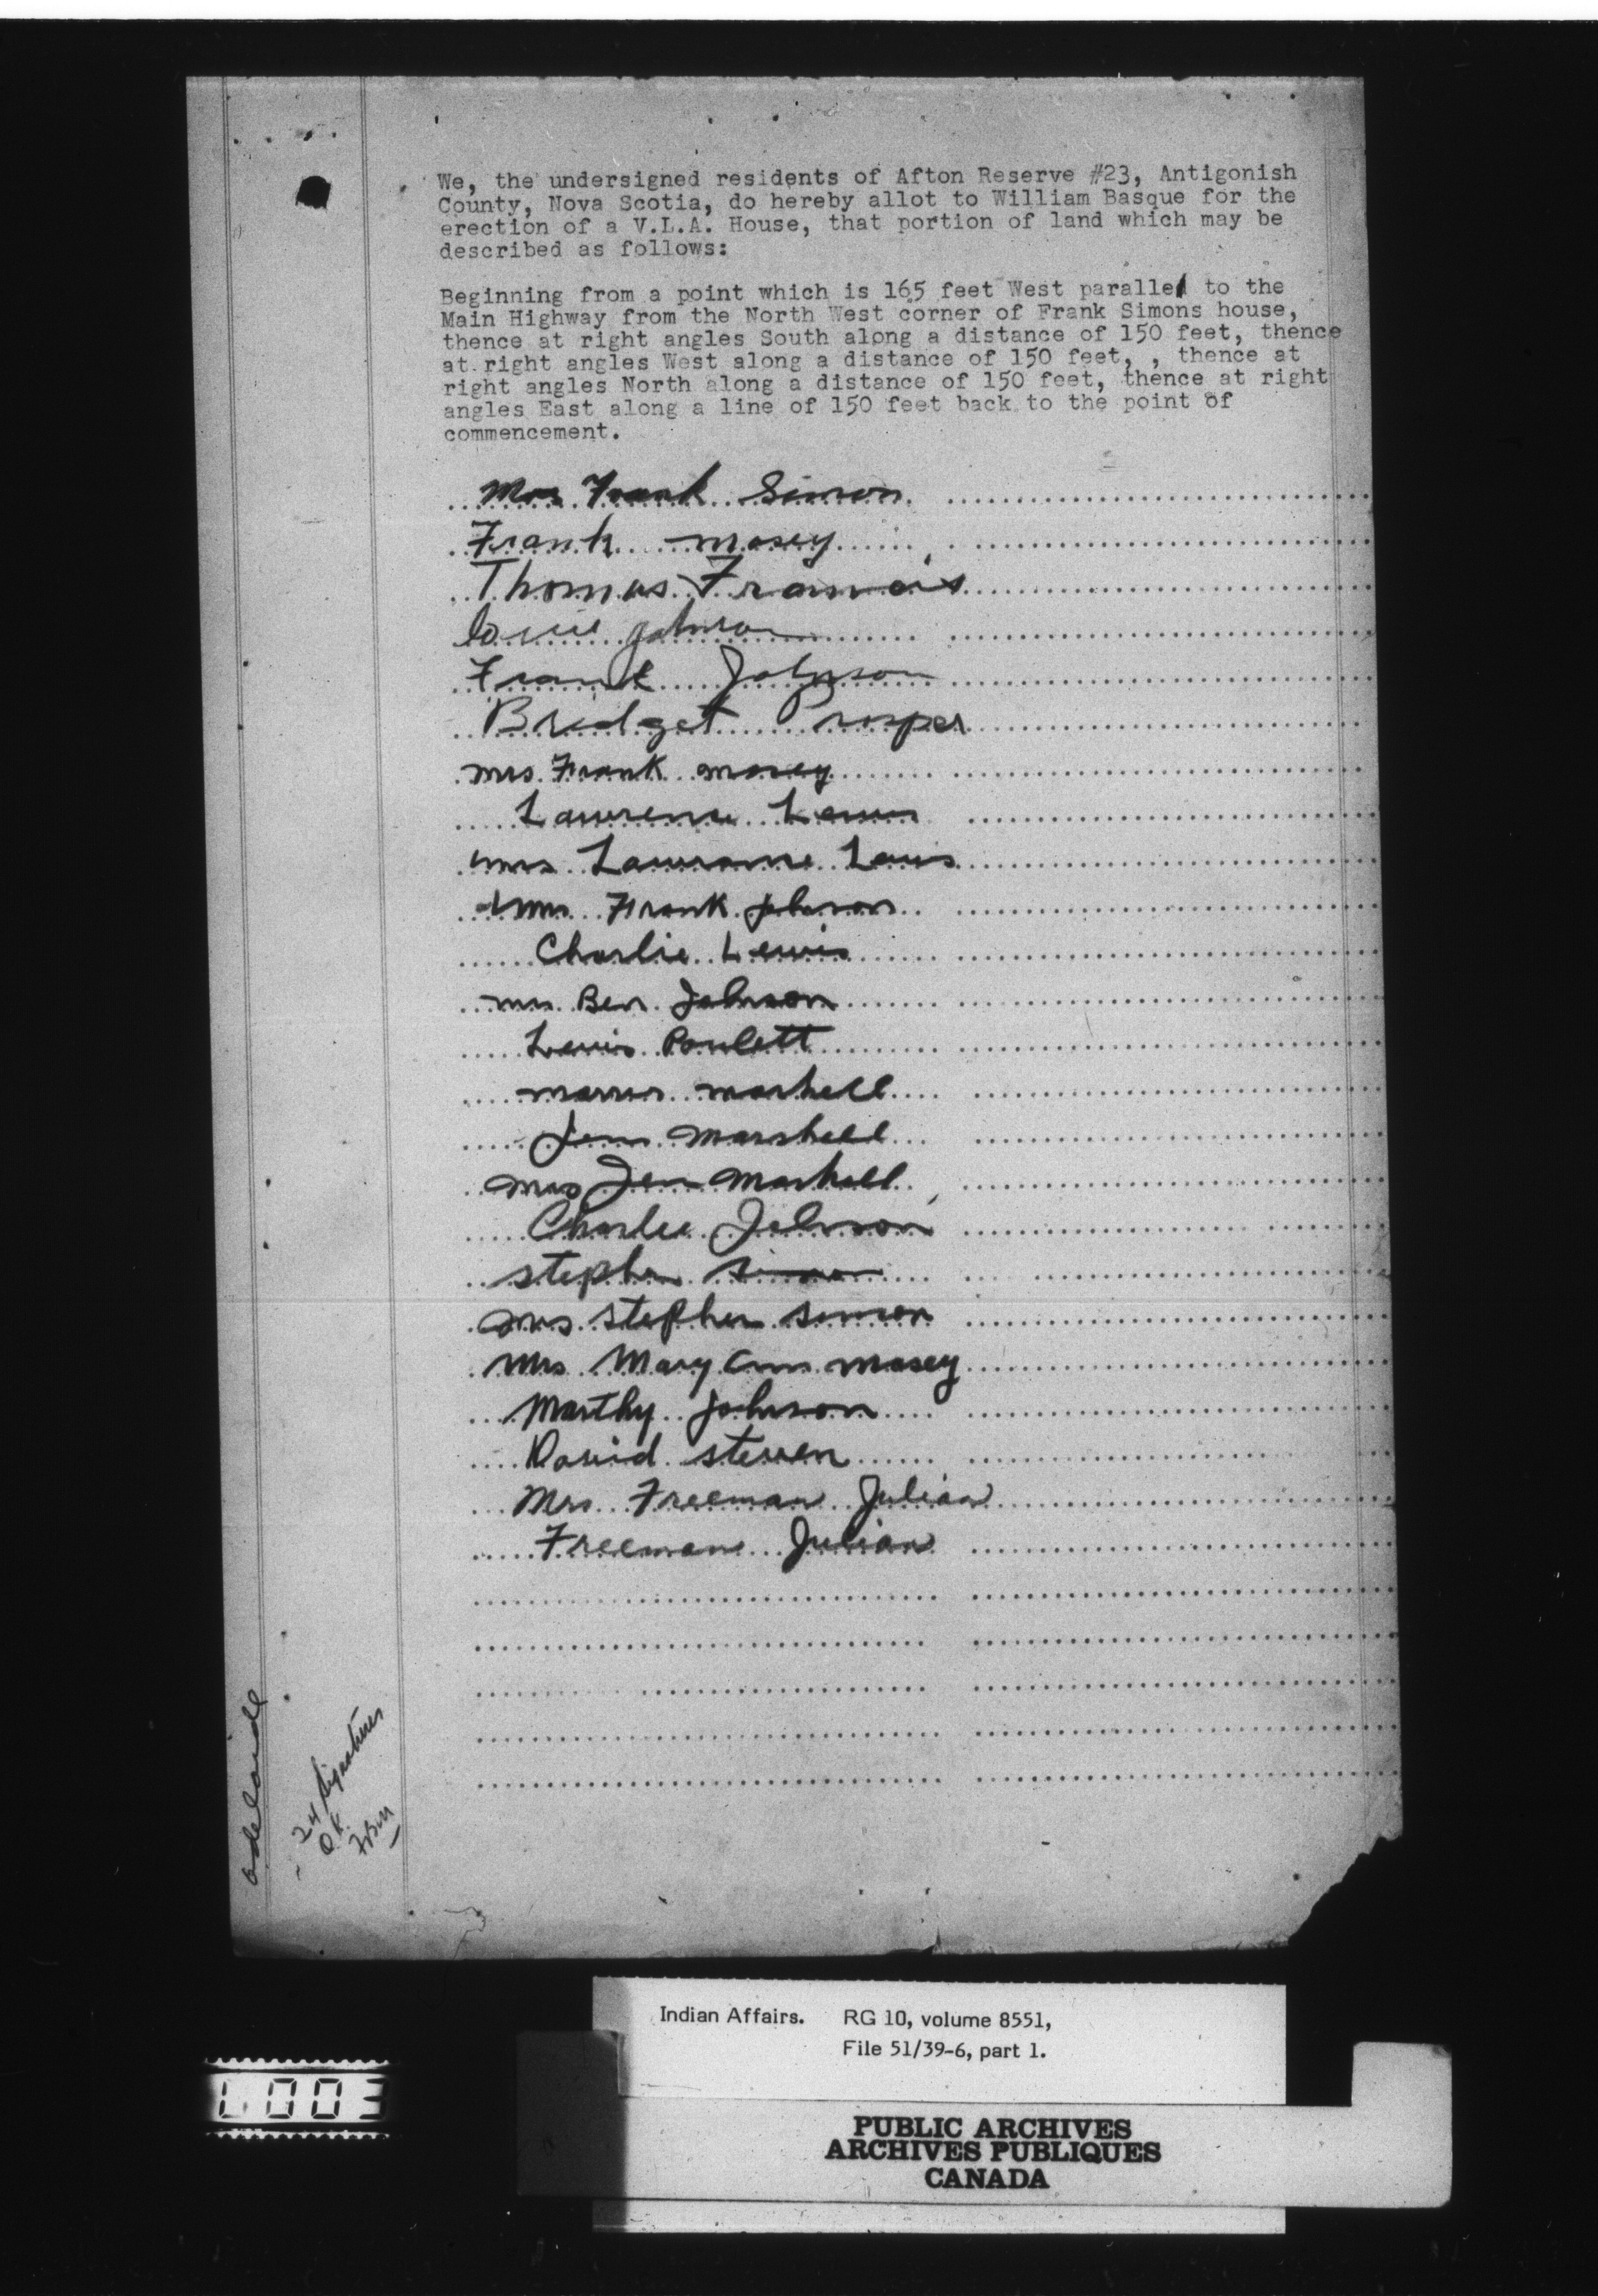 We, the undersigned residents of Afton Reserve #23, Antigonish
County, Nova Scotia, do hereby allot to William Basque for the
erection of a V.L.A. House, that portion of land which may be
described as follows:
Beginning from a point which is 165 feet West parallel to the
Main Highway from the North West corner of Frank Simons house,
thence at right angles South along a distance of 150 feet, thence
at right angles West along a distance of 150 feet, , thence at
right angles North along a distance of 150 feet, thence at right
angles East along a line of 150 feet back to the point of
commencement.
Mrs Frank Simon
Frank mosey
Thomas Francis
Johnson
Frank Johnson
Bridget Prosper
mrs. Frank mosey
Lawrence Lewis
mrs Lawrance Lewis
mrs Frank Johnson
Charlie Lewis
mrs. Ben Johnson
Lewis Poulett
marshell
Jim Marshell
mrs Jim Marshall
Charlie Johnson
stephen simon
mrs stephen simon
Mrs Mary Ann mosey
Marthy Johnson
David steven
Mrs. Freeman Julian
Freeman Julian
adelaide
24 Signatures
O.K.
Indian Affairs. RG 10, volume 8551,
File 51/39-6, part 1.
L003
PUBLIC ARCHIVES
ARCHIVES PUBLIQUES
CANADA